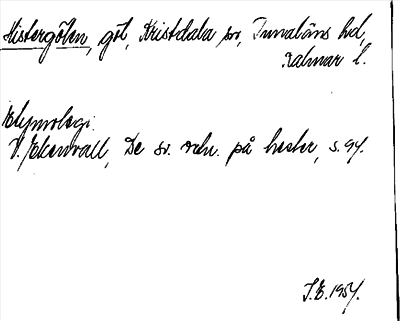 Histergölen, göl, Kristdala sn, Tunaläns hd,
Kalmar l.
Etymologi:
V. Ekenvall, De sv. ordn. på hester, s. 94.
S.E. 1954.